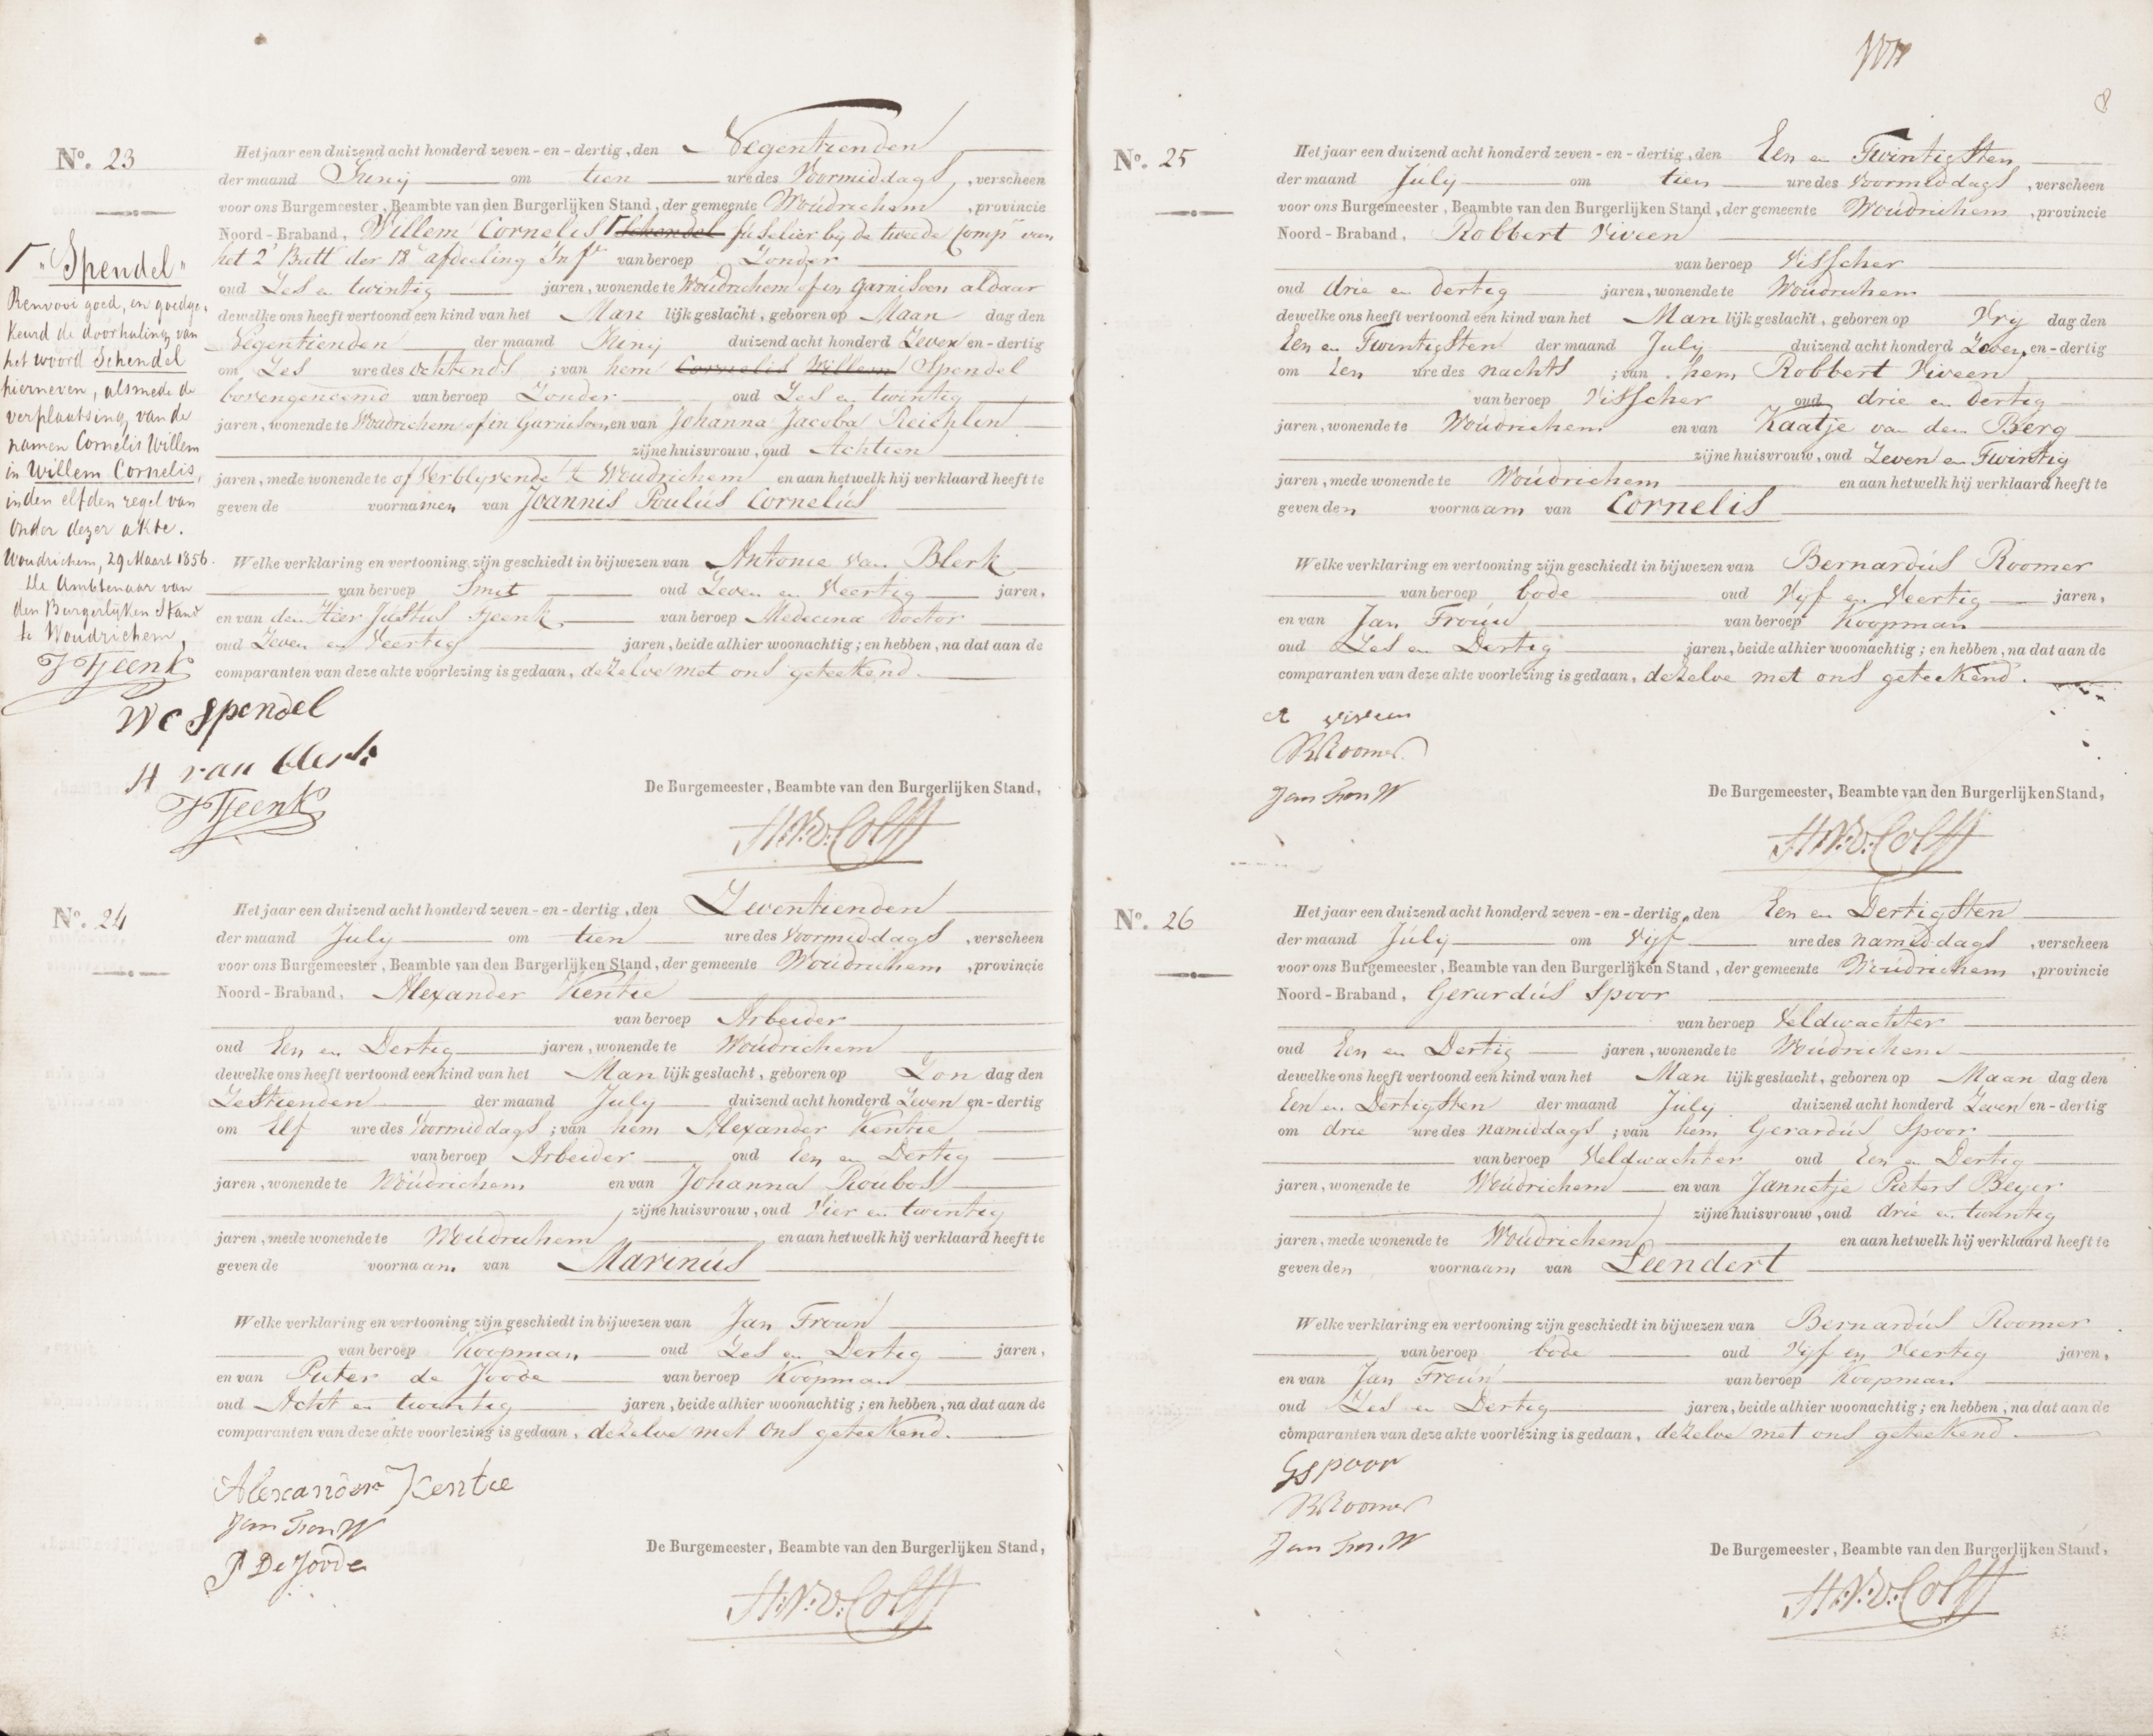 No. 23
Het jaar een duizend acht honderd zeven-en-dertig, den Negentienden
der maand Junij om tien ure des Voormiddags, verscheen
voor ons Burgemeester, Beambte van den Burgerlijken Stand, der gemeente Woudrichem, provincie
Noord-Braband, Willem Cornelis Schendel fuselier bij de tweede Comp. van
het 2e Batt der 18e afdeeling Inft van beroep Zonder
oud Zes en twintig jaren, wonende te Woudrichem of in Garnisoen aldaar
dewelke ons heeft vertoond een kind van het Man lijk geslacht, geboren op Maan dag den
Negentienden der maand Junij duizend acht honderd Zeven en-dertig
om Zes ure des Ochtends; van hem Cornelis Willem Spendel
bovengenoemd van beroep Zonder oud Zes en twintig
jaren, wonende te Woudrichem of in Garnisoen, en van Johanna Jacoba Reichlen
zijne huisvrouw, oud Achtien
jaren, mede wonende te of verblyvende te Woudrichem en aan hetwelk hij verklaard heeft te
geven de voornamen van Joannis Poulus Cornelus
Welke verklaring en vertooning zijn geschiedt in bijwezen van Antonie van Blerk
van beroep Smit oud Zeven en Veertig jaren,
en van den Heer Justus Tjeenk van beroep Medicina Doctor
oud Zeven en Veertig jaren, beide alhier woonachtig; en hebben, na dat aan de
comparanten van deze akte voorlezing is gedaan, dezelve met ons geteekend.
"Spendel"
Renvooi goed, en goedge-
keurd de doorhaling van
het woord Schendel
hierneven, alsmede de
verplaatsing van de
namen Cornelis Willem
in Willem Cornelis,
in den elfden regel van
onder dezer akte.
Woudrichem, 29 Maart 1856.
De Ambtenaar van
den Burgerlijken Stand
te Woudrichem,
J Tjeenk
W C Spendel
A van Blerk
J Tjeenk
De Burgemeester, Beambte van den Burgerlijken Stand,
No. 24
Het jaar een duizend acht honderd zeven-en-dertig, den Zeventienden
der maand July om tien ure des Voormiddags, verscheen
voor ons Burgemeester, Beambte van den Burgerlijken Stand, der gemeente Woudrichem, provincie
Noord-Braband, Alexander Kentie
van beroep Arbeider
oud Een en Dertig jaren, wonende te Woudrichem
dewelke ons heeft vertoond een kind van het Man lijk geslacht, geboren op Zon dag den
Zestienden der maand July duizend acht honderd Zeven en-dertig
om Elf ure des Voormiddags; van hem Alexander Kentie
van beroep Arbeider oud Een en Dertig
jaren, wonende te Woudrichem en van Johanna Roubos
zijne huisvrouw, oud Vier en twintig
jaren, mede wonende te Woudrichem en aan hetwelk hij verklaard heeft te
geven de voornaam van Marinus
Welke verklaring en vertooning zijn geschiedt in bijwezen van Jan Trouw
van beroep Koopman oud Zes en Dertig jaren,
en van Pieter de Joode van beroep Koopman
oud Acht en twintig jaren, beide alhier woonachtig; en hebben, na dat aan de
comparanten van deze akte voorlezing is gedaan, dezelve met ons geteekend.
Alexander Kentie
Jan Trou W
P De Joode
De Burgemeester, Beambte van den Burgerlijken Stand,
8
No. 25
Het jaar een duizend acht honderd zeven-en-dertig, den Een en Twintigsten
der maand July om tien ure des Voormiddags, verscheen
voor ons Burgemeester, Beambte van den Burgerlijken Stand, der gemeente Woudrichem, provincie
Noord-Braband, Robbert Viveen
van beroep Visscher
oud drie en Dertig jaren, wonende te Woudrichem
dewelke ons heeft vertoond een kind van het Man lijk geslacht, geboren op Vrij dag den
Een en Twintigsten der maand July duizend acht honderd Zeven en-dertig
om Een ure des nachts; van hem Robbert Viveen
van beroep Visscher oud drie en Dertig
jaren, wonende te Woudrichem en van Kaatje van den Berg
zijne huisvrouw, oud Zeven en Twintig
jaren, mede wonende te Woudrichem en aan hetwelk hij verklaard heeft te
geven den voornaam van Cornelis
Welke verklaring en vertooning zijn geschiedt in bijwezen van Bernardus Roomer
van beroep bode oud Vijf en Veertig jaren,
en van Jan Trouw van beroep Koopman
oud Zes en Dertig jaren, beide alhier woonachtig; en hebben, na dat aan de
comparanten van deze akte voorlezing is gedaan, dezelve met ons geteekend.
R viveen
B Roomer
Jan Trou W
De Burgemeester, Beambte van den Burgerlijken Stand,
No. 26
Het jaar een duizend acht honderd zeven-en-dertig, den Een en Dertigsten
der maand July om Vijf ure des namiddags, verscheen
voor ons Burgemeester, Beambte van den Burgerlijken Stand, der gemeente Woudrichem, provincie
Noord-Braband, Gerardus Spoor
van beroep Veldwachter
oud Een en Dertig jaren, wonende te Woudrichem
dewelke ons heeft vertoond een kind van het Man lijk geslacht, geboren op Maan dag den
Een en Dertigsten der maand July duizend acht honderd Zeven en-dertig
om drie ure des namiddags; van hem Gerardus Spoor
van beroep Veldwachter oud Een en Dertig
jaren, wonende te Woudrichem en van Jannetje Pieters Beyer
zijne huisvrouw, oud drie en twintig
jaren, mede wonende te Woudrichem en aan hetwelk hij verklaard heeft te
geven den voornaam van Leendert
Welke verklaring en vertooning zijn geschiedt in bijwezen van Bernardus Roomer
van beroep bode oud Vijf en Veertig jaren,
en van Jan Trouw van beroep Koopman
oud Zes en Dertig jaren, beide alhier woonachtig; en hebben, na dat aan de
comparanten van deze akte voorlezing is gedaan, dezelve met ons geteekend.
G Spoor
B Roomer
Jan Trou W
De Burgemeester, Beambte van den Burgerlijken Stand,